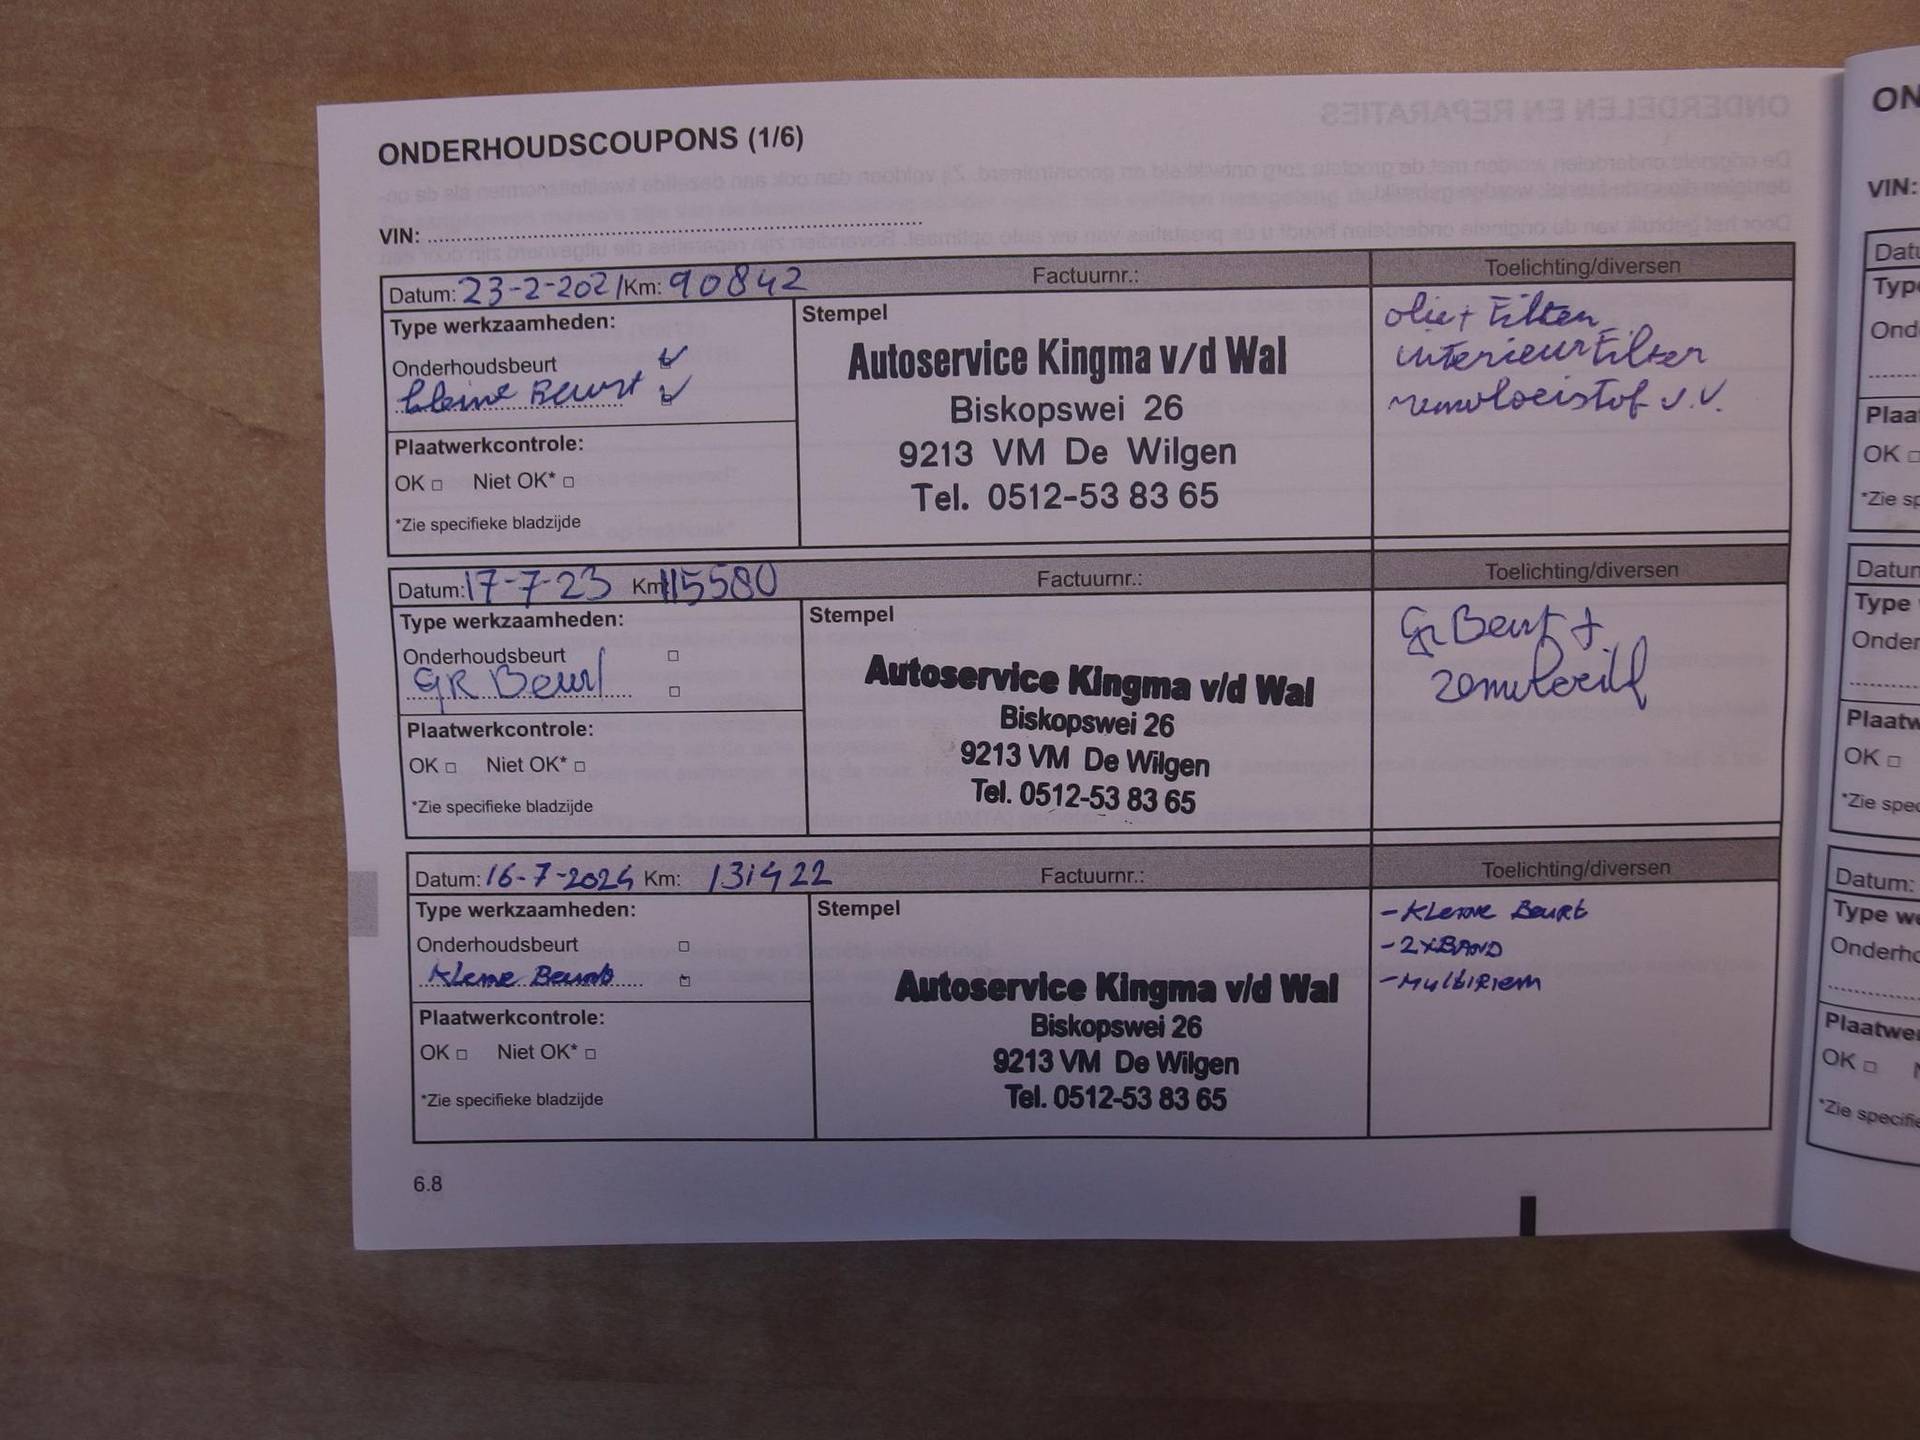 ONDERHOUDSCOUPONS (1/6)
ONDERDELEN EN REPARATIES
VIN:
Datum: 23-2-2021 Km: 90842 Factuurnr.: Toelichting/diversen
Type werkzaamheden:
Onderhoudsbeurt
kleine Beurt
Plaatwerkcontrole:
OK Niet OK*
*Zie specifieke bladzijde
Stempel
Autoservice Kingma v/d Wal
Biskopswei 26
9213 VM De Wilgen
Tel. 0512-53 83 65
olie + Filter
interieurfilter
remvloeistof v.v.
Datum: 17-7-23 Km: 115580 Factuurnr.: Toelichting/diversen
Type werkzaamheden:
Onderhoudsbeurt
GR Beurt
Plaatwerkcontrole:
OK Niet OK*
*Zie specifieke bladzijde
Stempel
Autoservice Kingma v/d Wal
Biskopswei 26
9213 VM De Wilgen
Tel. 0512-53 83 65
Gr Beurt +
Datum: 16-7-2024 Km: 131422 Factuurnr.: Toelichting/diversen
Type werkzaamheden:
Onderhoudsbeurt
Kleine Beurt
Plaatwerkcontrole:
OK Niet OK*
*Zie specifieke bladzijde
Stempel
Autoservice Kingma v/d Wal
Biskopswei 26
9213 VM De Wilgen
Tel. 0512-53 83 65
- Kleine Beurt
- 2xBAND
- Multiriem
6.8
ON
VIN:
Datu
Type
Ond
Plaa
OK
*Zie sp
Datun
Type
Onder
Plaatw
OK
*Zie spec
Datum:
Type we
Onderho
Plaatwer
OK
*Zie specifie